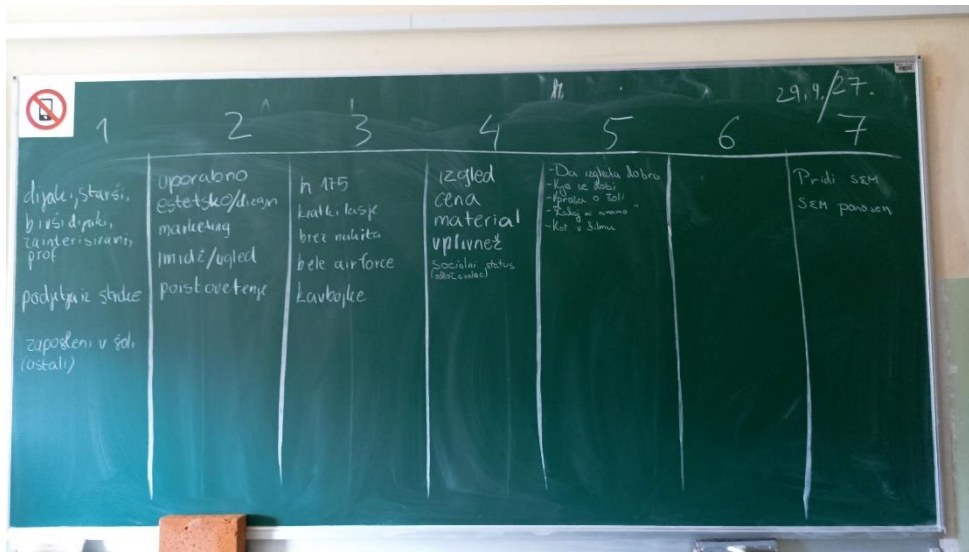 29.4./27.
1 2 3 4 5 6 7
dijaki, starši,
bivši dijaki,
zainteresirani,
prof
podjetja iz stroke
zaposleni v šoli
(ostali)
uporabno
estetsko/dizajn
marketing
imidž/ugled
poistovetenje
h 175
kratki lasje
brez nakita
bele air force
kavbojke
izgled
cena
material
vplivnež
socialni status
- Da izgleda dobro
- Kje se dobi
- Vpraša o šoli
- Kot v filmu
Pridi SEM
SEM ponosen